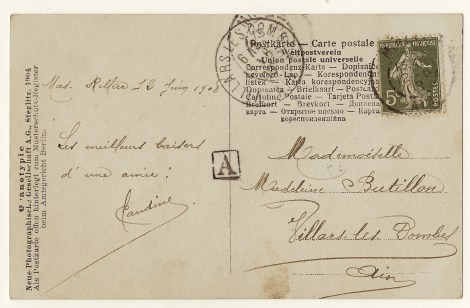 Postkarte — Carte postale
Weltpostverein
Union postale universelle
Correspondenzkarte — Dopisnice
Levelező-Lap. — Korespondencni
listek — Karta korespondencyjna
Dopisnica — Briefkaart — Post card
Cartolina Postale — Tarjeta Postal
Brefkort — Brevkort — Дописна
карта — Открытое письмо — Карта
кореспонденційна
VILLARS LES DOMBES
5
POSTES
Mas. Rillier 12 Juin 1908
Les meilleurs baisers
d'une amie!
Claudine
A
Mademoiselle
Madeleine Butillon
Villars-les-Dombes
Ain
O'anotypie
Neue Photographische Gesellschaft A.G., Steglitz 1904
Als Postkarte offen hinterlegt zum Musterschutz-Register
beim Amtsgericht Berlin.